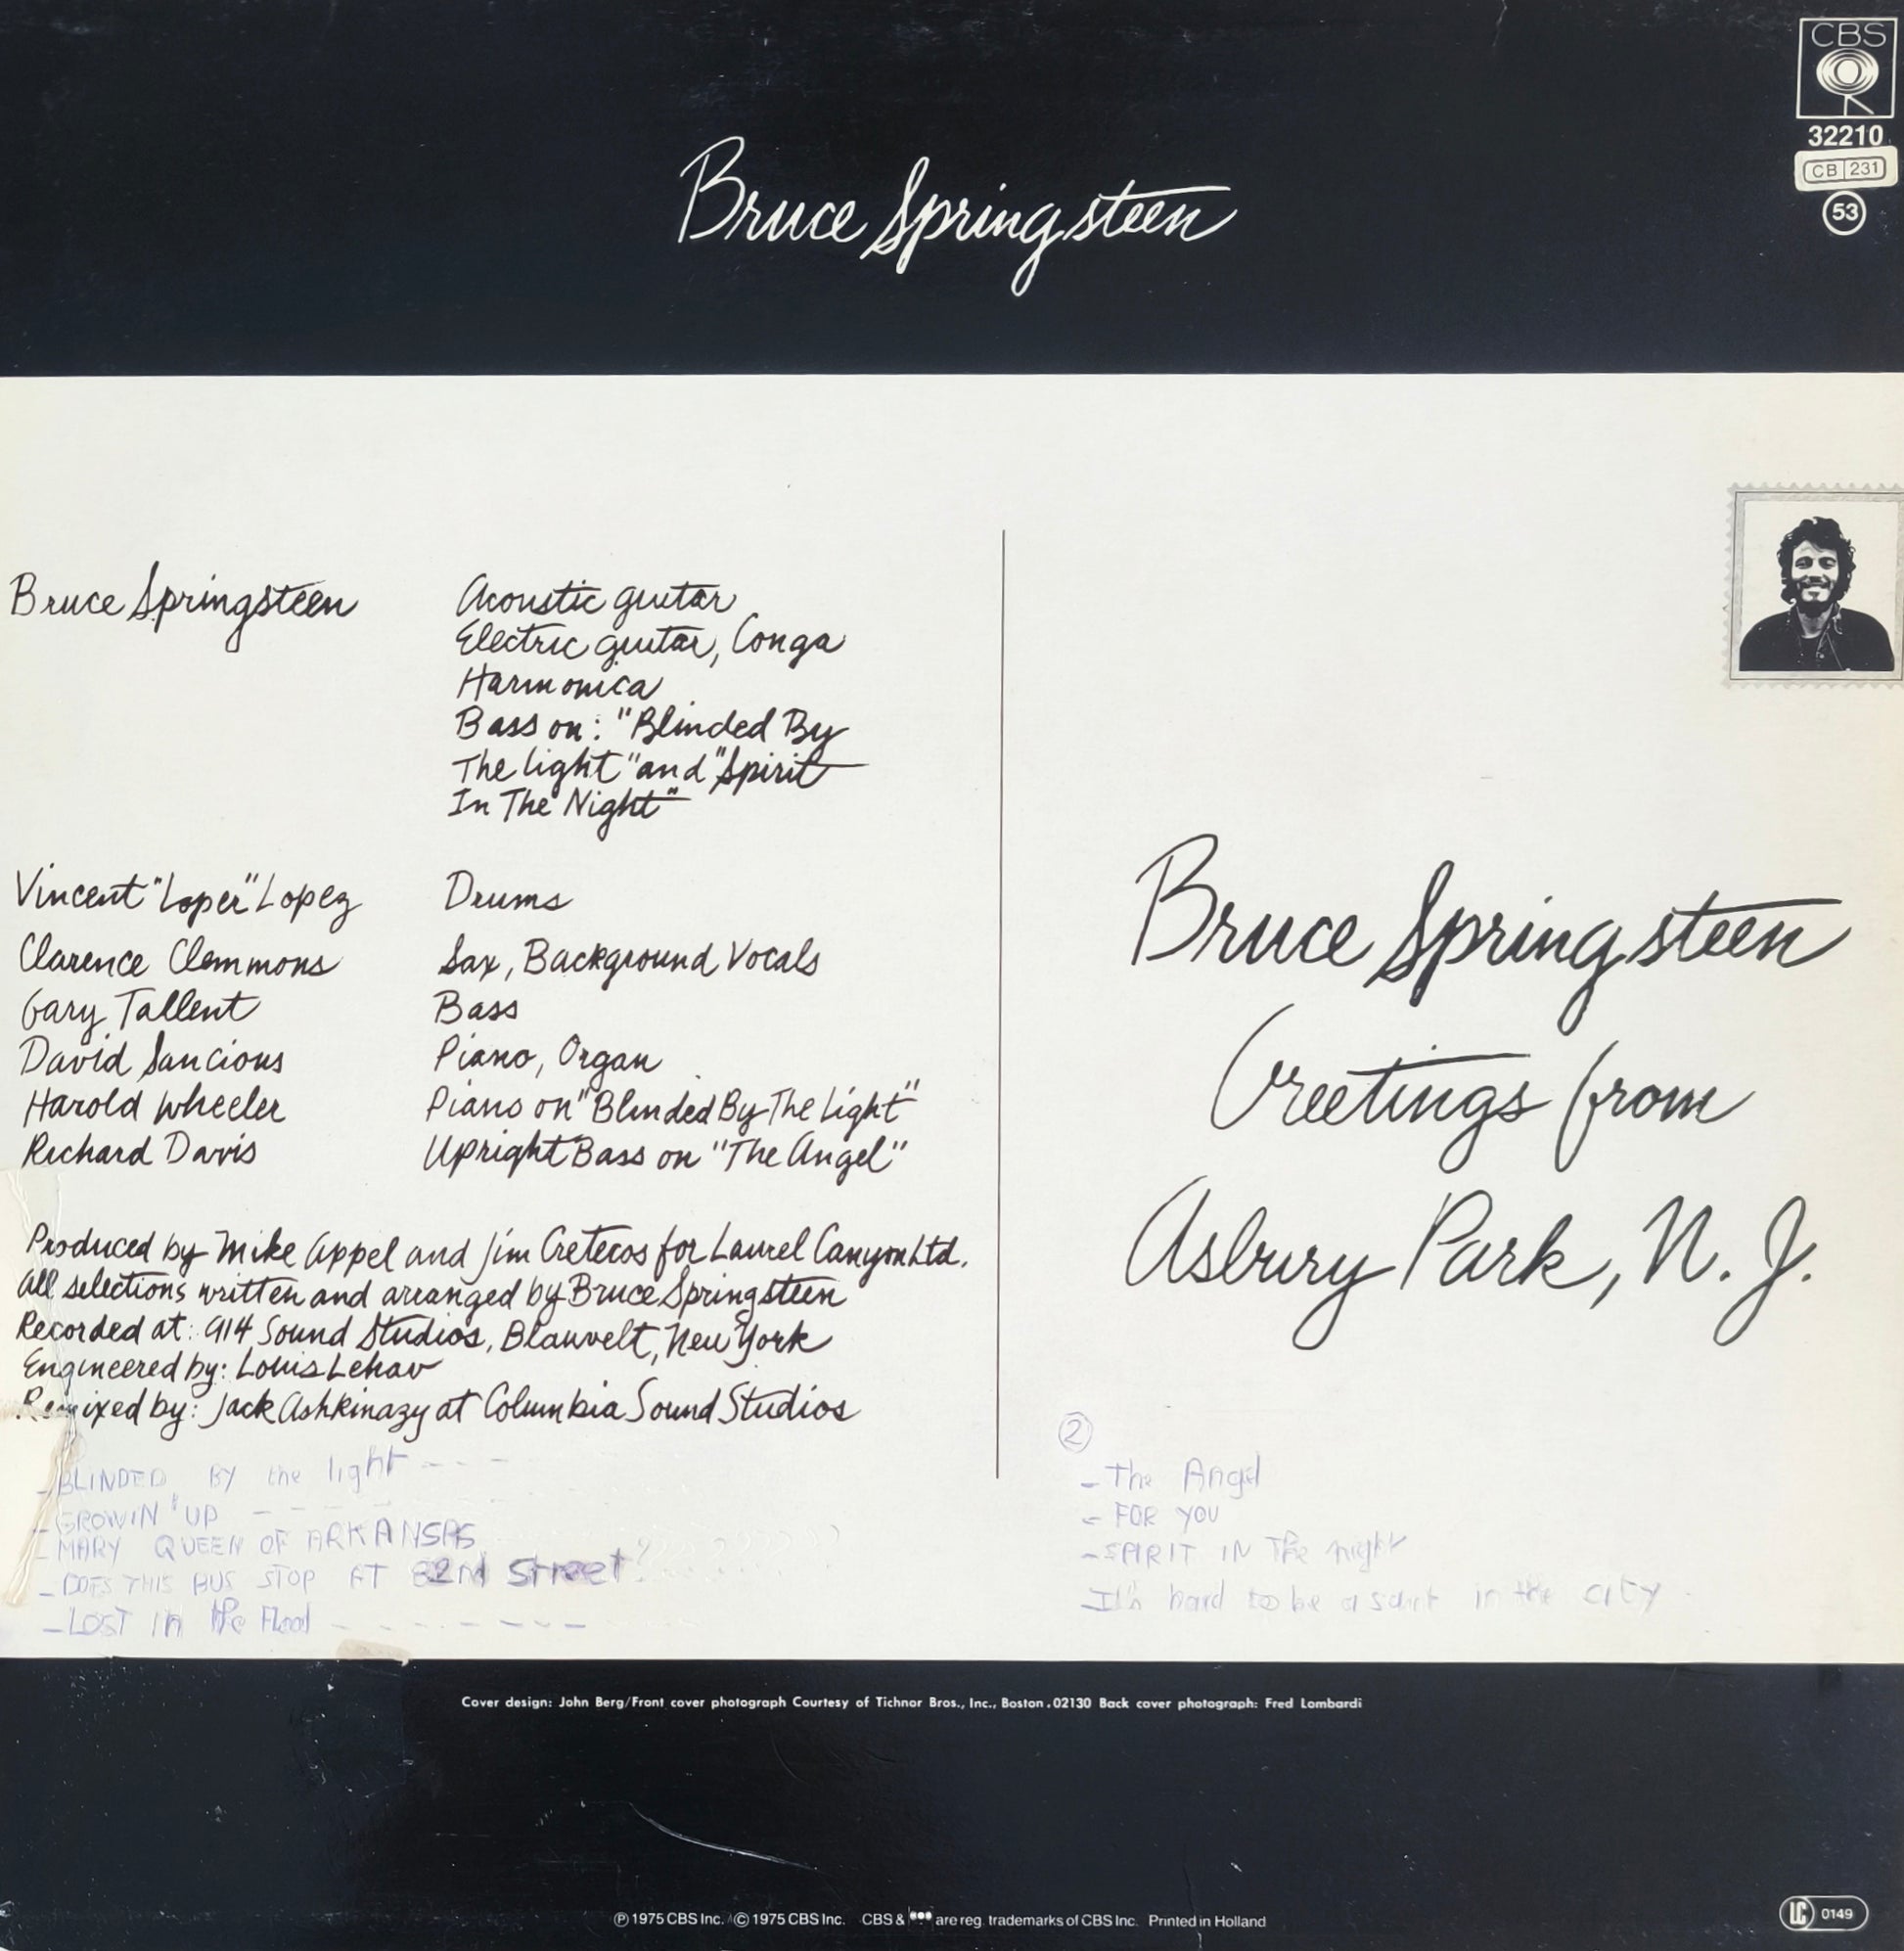 CBS
32210
CB 231
53
Bruce Springsteen
Bruce Springsteen
Acoustic guitar
Electric guitar, Conga
Harmonica
Bass on: "Blinded By
The Light" and "Spirit
In The Night"
Vincent "Loper" Lopez Drums
Clarence Clemmons Sax, Background Vocals
Gary Tallent Bass
David Sancious Piano, Organ
Harold Wheeler Piano on "Blinded By The Light"
Richard Davis Upright Bass on "The Angel"
Produced by Mike Appel and Jim Cretecos for Laurel Canyon Ltd.
All selections written and arranged by Bruce Springsteen
Recorded at: 914 Sound Studios, Blauvelt, New York
Engineered by: Louis Lehav
Remixed by: Jack Ashkinazy at Columbia Sound Studios
- BLINDED BY the light - - -
- GROWIN' UP - - - -
- MARY QUEEN OF ARKANSAS
- DOES THIS BUS STOP AT 82Nd Street?
- LOST in the Flood - - - - - - -
Bruce Springsteen
Greetings from
Asbury Park, N. J.
2
- The Angel
- FOR YOU
- SPIRIT IN The night
hard to be a saint in the city
Cover design: John Berg/Front cover photograph Courtesy of Tichnor Bros., Inc., Boston.02130 Back cover photograph: Fred Lombardi
Ⓟ 1975 CBS Inc. © 1975 CBS Inc. CBS & are reg. trademarks of CBS Inc. Printed in Holland
LC 0149